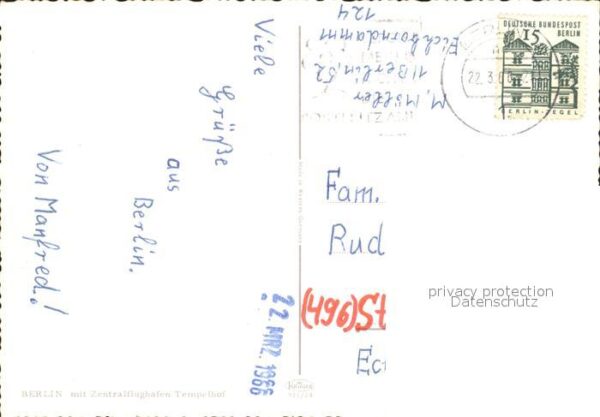 Viele
Grüße
aus
Berlin.
Von Manfred!
M. Möller
1 Berlin 52
Eichborndamm
124
DEUTSCHE BUNDESPOST
15 BERLIN
BERLIN-TEGEL
22.3.66
Fam.
Rud
(496) St
Ec
22. MRZ. 1966
privacy protection
Datenschutz
BERLIN mit Zentralflughafen Tempelhof